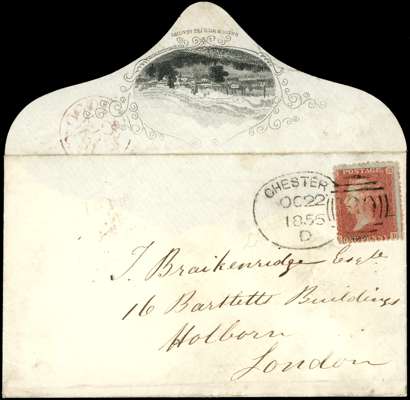 CHESTER
OC 22
1855
D
POSTAGE
J. Braikenridge Esqre
16 Bartlett Buildings
Holborn
London